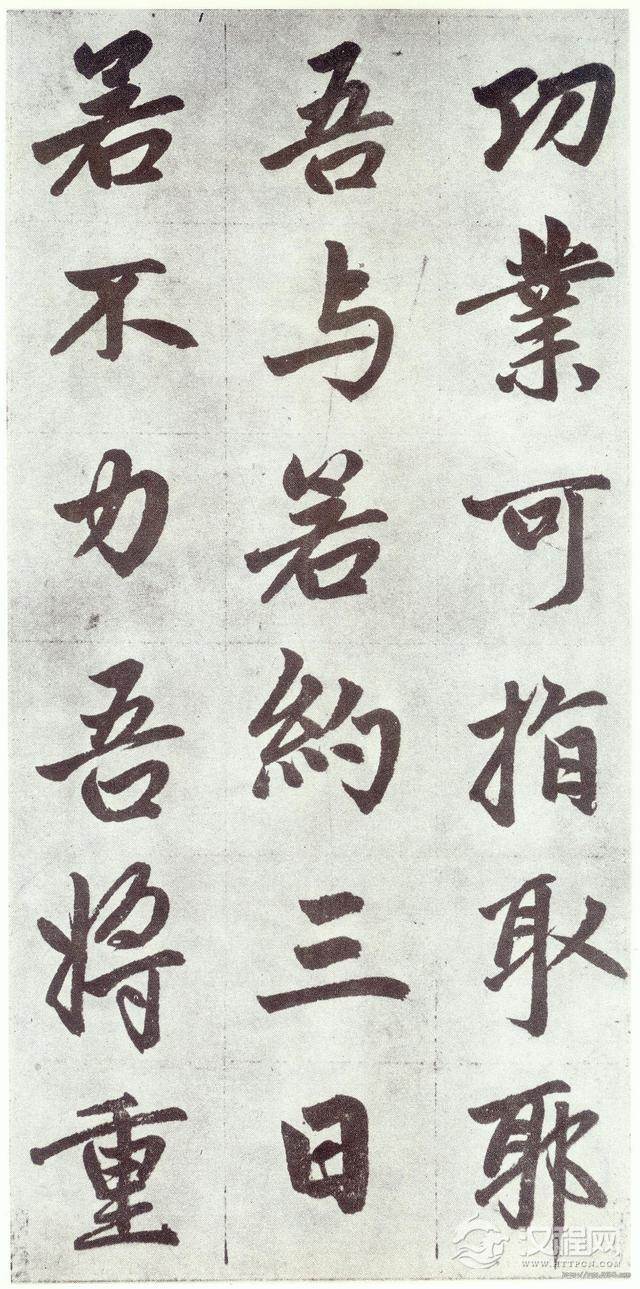 功業可指取耶
吾与若約三日
若不力吾將重
汉程网
WWW.HTTPCN.COM